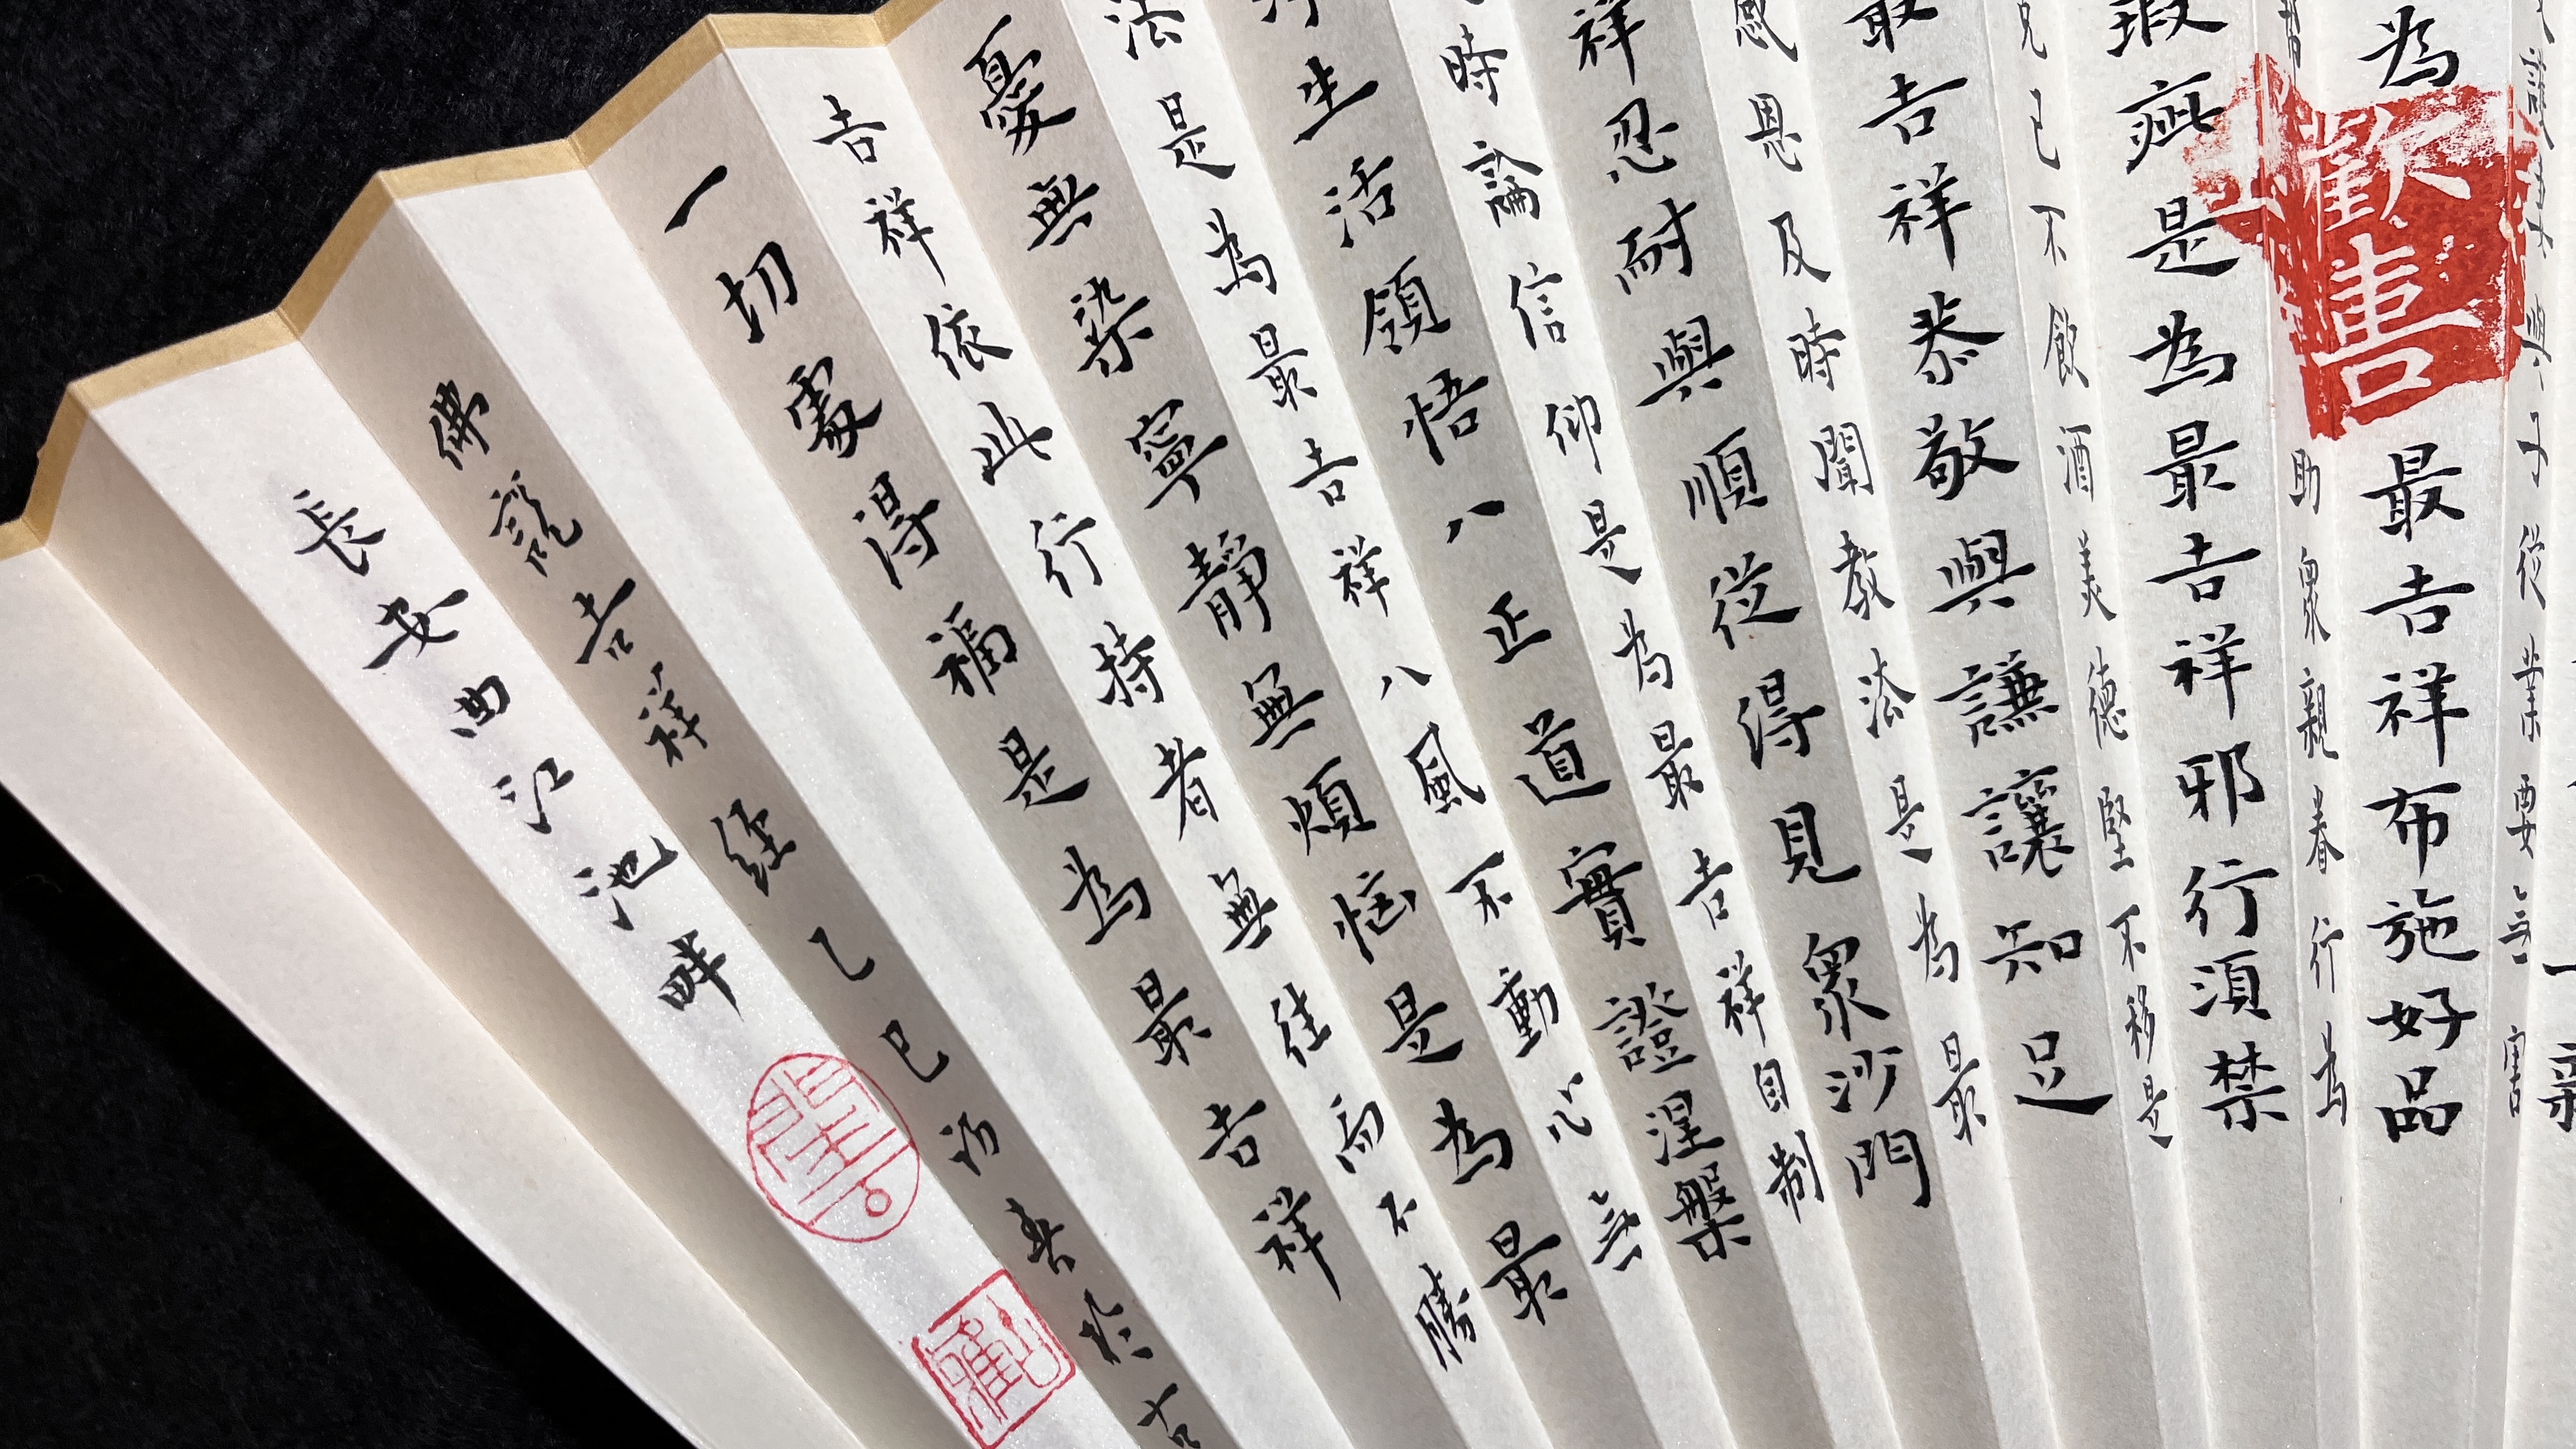 為
最吉祥布施好品
助眾親眷行為
瑕疵是為最吉祥邪行須禁
己不飲酒美德堅不移是
最吉祥恭敬與謙讓知足
恩及時聞教法是為最
祥忍耐與順從得見眾沙門
時論信仰是為最吉祥自制
生活領悟八正道實證涅槃
法是為最吉祥八風不動心無
憂無染寧靜無煩惱是為最
吉祥依此行持者無往而不勝
一切處得福是為最吉祥
佛說吉祥經乙巳初春於古
長安曲江池畔
歡喜